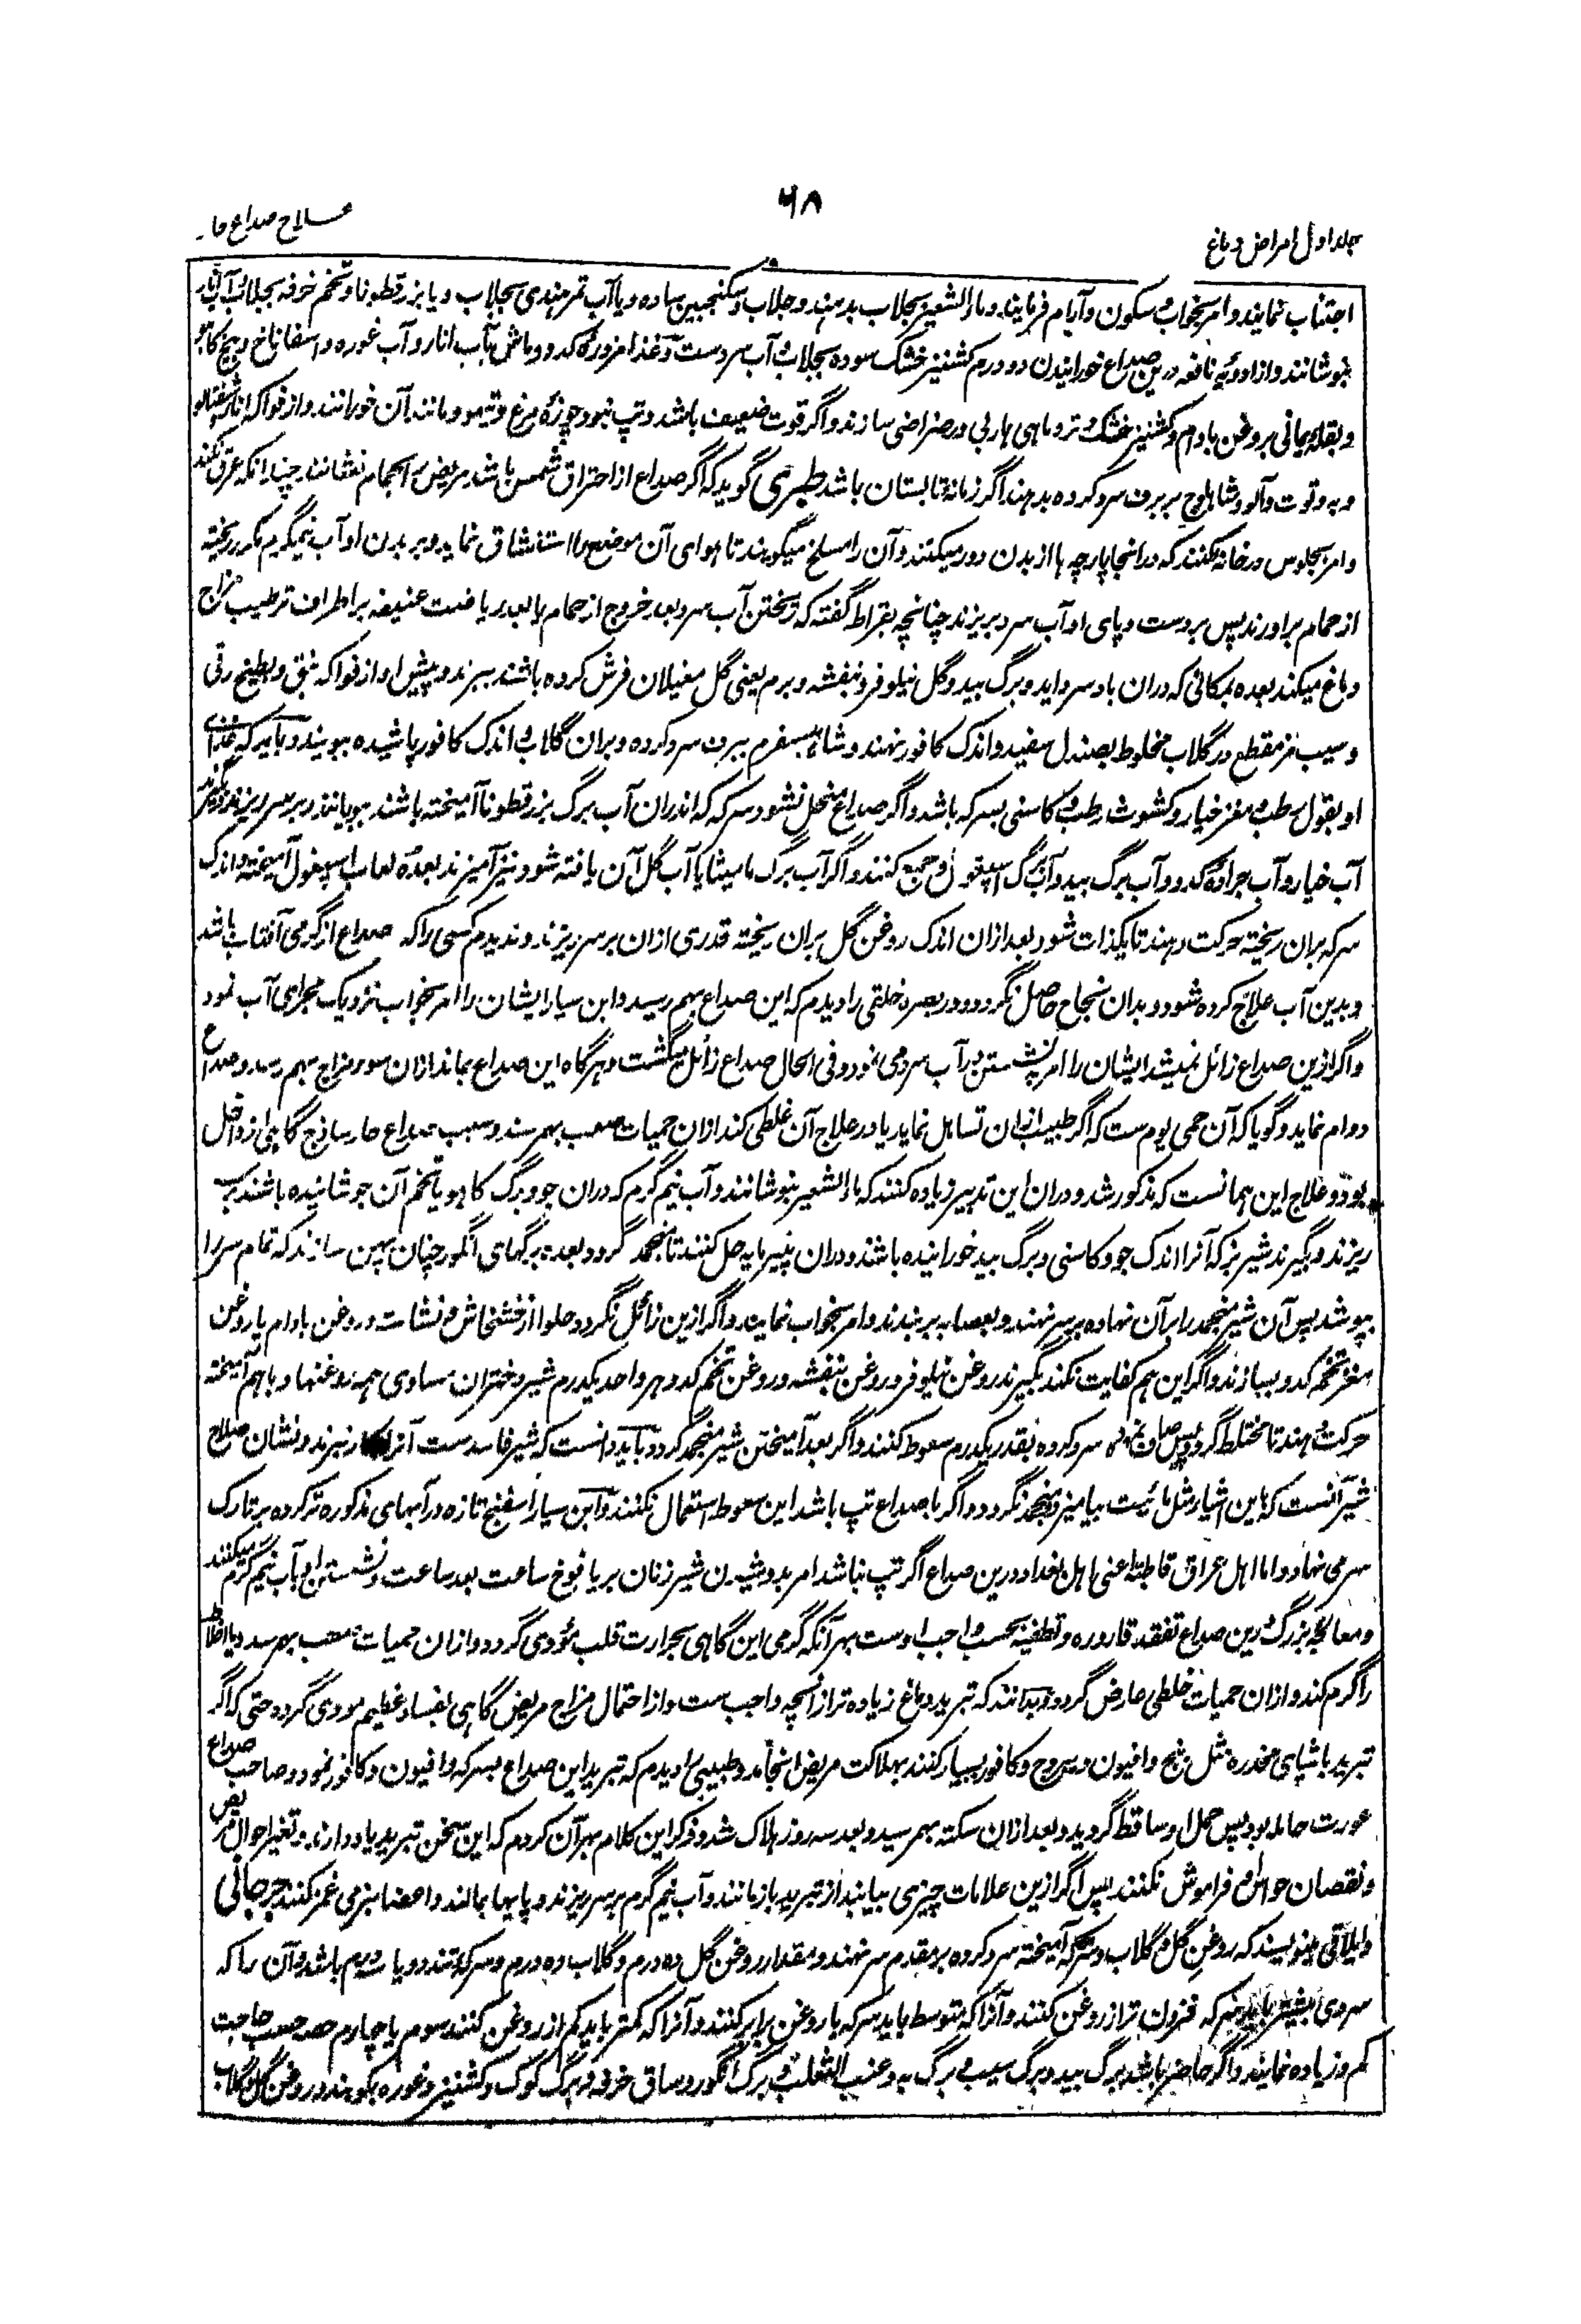 ۶۸
جلد اول امراض دماغ
علاج صداع حار
اجتناب نمایند و امر بخواب و سکون و آرام فرمایند و ماء الشعیر بجلاب بدهند و جلاب و سکنجبین ساده و یا آب تمر هندی بجلاب و یا بزرقطونا و تخم خرفه بجلاب
بنوشانند و از ادویه نافعه درین صداع خورانیدن دو درم کشنیز خشک سوده بجلاب و آب سردست و غذا مزوره کدو و ماش بآب انار و آب غوره و اسفاناخ و
و بقله یمانی بروغن بادام و کشنیز خشک و تر و ماهی هاربی و رضراضی سازند و اگر قوت ضعیف باشد و تپ نبود چوزه مرغ و تیهو و مانند آن خورانند و از فواکه انار
و به و توت و آلو و شاهلوج ببرف سرد کرده بدهند اگر زمانه تابستان باشد طبری گوید که اگر صداع از احتراق شمس باشد مریض را بحمام نشانند چندانکه عرق نکند
و امر بجلوس در خانه کنند که در آنجا پارچه ها از بدن دور میکنند و آن را مسلخ میگویند تا هوای آن موضع را استنشاق نماید و بر بدن او آب نیمگرم مکرر ریخته
از حمام برآورند پس بر دست و پای او آب سرد بریزند چنانچه بقراط گفته که ریختن آب سرد بعد خروج از حمام یا بعد ریاضت عنیفه بر اطراف ترطیب مزاج
دماغ میکند بعده بمکانی که دران باد سرد آید و برگ بید و گل نیلوفر و بنفشه و برم یعنی گل مغیلان فرش کرده باشند ببرند و پیش او از فواکه نبق و بطیخ رقی
و سیب مز مقطع در گلاب مخلوط بصندل سفید و اندک کافور نهند و شاهسفرم ببرف سرد کرده و بران گلاب و اندک کافور پاشیده ببویند و باید که غذای
او بقول رطب و مغز خیار و کشوث رطب و کاسنی بسرکه باشد و اگر صداع منحل نشود سرکه که اندران آب برگ بزرقطونا آمیخته باشند ببویانند و بر سر ریزند
آب خیار و آب جراده کدو و آب برگ بید و آب برگ اسپغول جمع کنند و اگر آب برگ مامیثا یا آب گل آن یافته شود نیز آمیزند بعده لعاب اسپغول آمیخته و اندک
سرکه بران ریخته حرکت دهند تا یکذات شود بعد ازان اندک روغن گل بران ریخته قدری ازان بر سر ریزند و ندیدم کسی را که صداع از گرمی آفتاب باشد
و بدین آب علاج کرده شود و بدان نجاح حاصل نگردد و در بصره خلقی را دیدم که این صداع بهم رسید و ابن سیار ایشان را امر بخواب نزدیک مجرای آب نمود
و اگر ازین صداع زائل نمیشد ایشان را امر به نشستن در آب سرد می نمود و فی الحال صداع زائل میگشت و هرگاه این صداع بماند ازان سوء مزاج بهم رسد و صداع
دوام نماید و گویا که آن حمی یوم ست که اگر طبیب دران تساهل نماید یا در علاج آن غلطی کند ازان حمیات صعب بهم رسند و سبب صداع حار ساذج گاهی از داخل
بود و علاج این همانست که مذکور شد و دران این تدبیر زیاده کنند که ماء الشعیر بنوشانند و آب نیم گرم که دران جو و برگ کاهو یا تخم آن جوشانیده باشند بر سر
ریزند و بگیرند شیر بز که آنرا اندک جو و کاسنی و برگ بید خورانیده باشند و دران پنیرمایه حل کنند تا منجمد گردد بعده برگهای انگور چنان پهن سازند که تمام سر را
بپوشد پس آن شیر منجمد را بران نهاده بر سر نهند و بعصابه بربندند و امر بخواب نمایند و اگر ازین زائل نگردد حلوا از خشخاش و نشاسته و روغن بادام یا روغن
مغز تخم کدو بسازند و اگر این هم کفایت نکند بگیرند روغن نیلوفر و روغن بنفشه و روغن تخم کدو هر واحد یکدرم شیر دختران مساوی همه روغنها و باهم آمیخته
حرکت دهند تا مختلط گردد پس صاف نموده سرد کرده بقدر یکدرم سعوط کنند و اگر بعد آمیختن شیر منجمد گردد باید دانست که شیر فاسدست آنرا بکار نبرند و نشان صلاح
شیر آنست که باین اشیا مثل مائیت بیامیزد و منجمد نگردد و اگر با صداع تپ باشد این سعوط استعمال نکنند و ابن سیار اسفنج تازه در آبهای مذکوره تر کرده بر تارک
سر می نهاد و اما اهل عراق قاطبة اعنی اهل بغداد درین صداع اگر تپ نباشد امر بدوشیدن شیر زنان بر یافوخ ساعت بعد ساعت و نشستن در آب نیم گرم میکنند
و معالجه بزرگ درین صداع تفقد قاروره و تطفیه بحسب واجب اوست بهر آنکه گرمی این گاهی بحرارت قلب مؤدی گردد و ازان حمیات صعب بهم رسد و یا اخلاط
را گرم کند و ازان حمیات خلطی عارض گردد و بدانند که تبرید دماغ زیاده تر از آنچه واجب ست و از احتمال مزاج مریض گاهی بفساد عظیم مودی گردد حتی که اگر
تبرید باشیای مخدره مثل بنج و افیون و یبروج و کافور بسیار کنند بهلاکت مریض انجامد و طبیبی را دیدم که تبرید این صداع بسرکه و افیون و کافور نمود و صاحب صداع
عورت حامله بود پس حمل او ساقط گردید و بعد ازان سکته بهم رسید و بعد سه روز هلاک شد و ذکر این کلام بهر آن کردم که این سخن تبرید یاد دارند و تغیر احوال مریض
و نقصان حواس فراموش نکنند پس اگر ازین علامات چیزی بیابند از تبرید باز مانند و آب نیم گرم بر سر ریزند و پایها بمالند و اعضا بنرمی غمز کنند جرجانی
و ایلاقی مینویسند که روغن گل و گلاب و سرکه آمیخته سرد کرده بر مقدم سر نهند و مقدار روغن گل ده درم و گلاب ده درم و سرکه تند دو یا سه درم باشد و آن را که
سردی بیشتر باید سرکه فزون تر از روغن کنند و آنرا که متوسط باید سرکه با روغن برابر کنند و آنرا که کمتر باید کم از روغن کنند سوم یا چهارم حصه حسب حاجت
کم و زیاده نمایند و اگر حاضر باشد برگ بید و برگ سیب و برگ به و عنب الثعلب و برگ انگور و ساق خرفه و برگ کوک و کشنیز و غوره بکوبند و روغن گل و گلاب